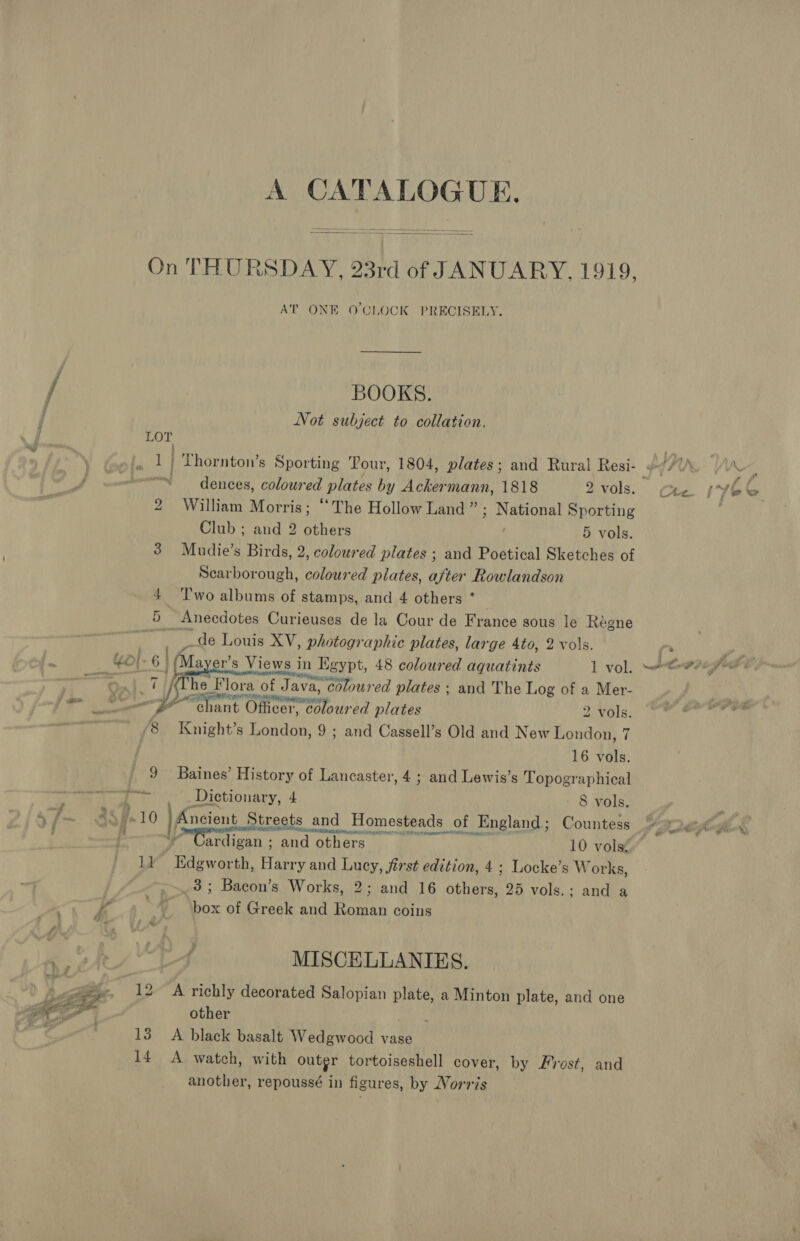 A CATALOGUE.
On THURSDAY, 23rd of JANUARY, 1919,
AT ONE O'CLOCK PRECISELY.
BOOKS.
Not subject to collation.
LOT
1 Thornton's Sporting Tour, 1804, plates; and Rural Resi-
dences, coloured plates by Ackermann, 1818 2 vols.
2 William Morris; “The Hollow Land”; National Sporting
Club; and 2 others 5 vols.
3 Mudie's Birds, 2, coloured plates; and Poetical Sketches of
Scarborough, coloured plates, after Rowlandson
4 Two albums of stamps, and 4 others *
5 Anecdotes Curieuses de la Cour de France sous le Règne
de Louis XV, photographic plates, large 4to, 2 vols.
40/- 6 Mayer's Views in Egypt, 48 coloured aquatints 1 vol.
7 The Flora of Java, coloured plates; and The Log of a Mer-
chant Officer, coloured plates 2 vols.
8 Knight's London, 9; and Cassell's Old and New London, 7
16 vols.
9 Baines' History of Lancaster, 4; and Lewis's Topographical
Dictionary, 4 8 vols.
10 Ancient Streets and Homesteads of England; Countess
Cardigan; and others 10 vols.
11 Edgworth, Harry and Lucy, first edition, 4; Locke's Works,
3; Bacon's Works, 2; and 16 others, 25 vols.; and a
box of Greek and Roman coins
MISCELLANIES.
12 A richly decorated Salopian plate, a Minton plate, and one
other
13 A black basalt Wedgwood vase
14 A watch, with outer tortoiseshell cover, by Frost, and
another, repoussé in figures, by Norris